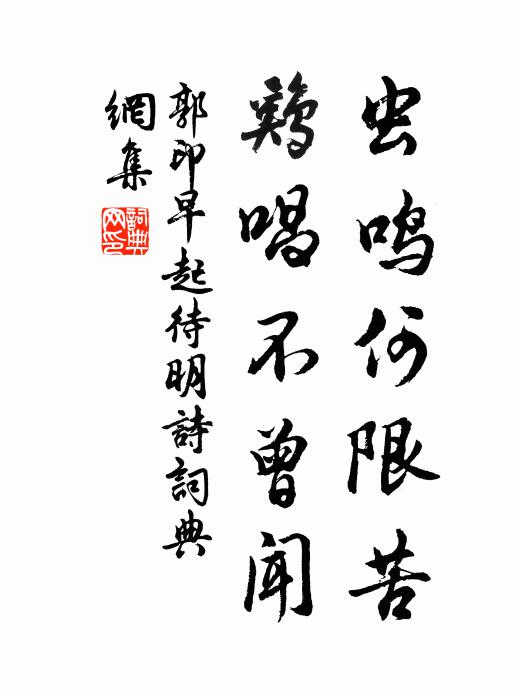 虫鸣何限苦
鷄唱不曾闻
郭印早起待明詩詞典
網集
詞典
网印